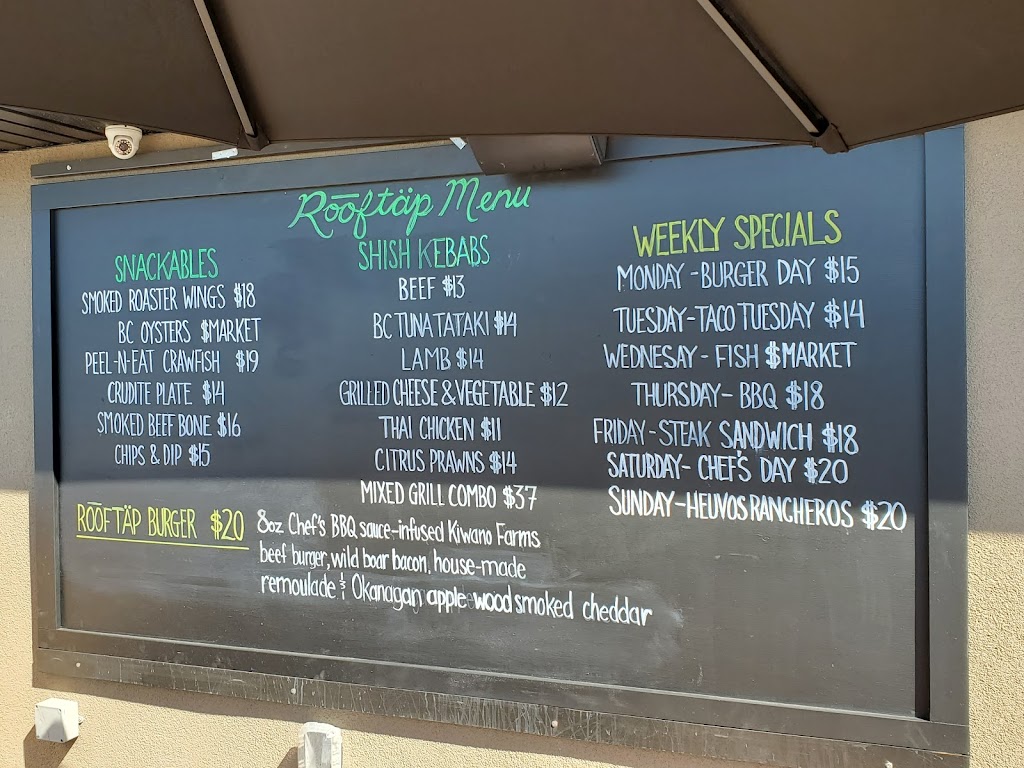 Rōōftäp Menu
SNACKABLES
SMOKED ROASTER WINGS $18
BC OYSTERS $MARKET
PEEL-N-EAT CRAWFISH $19
CRUDITE PLATE $14
SMOKED BEEF BONE $16
CHIPS & DIP $15
SHISH KEBABS
BEEF $13
BC TUNA TATAKI $14
LAMB $14
GRILLED CHEESE & VEGETABLE $12
THAI CHICKEN $11
CITRUS PRAWNS $14
MIXED GRILL COMBO $37
WEEKLY SPECIALS
MONDAY - BURGER DAY $15
TUESDAY - TACO TUESDAY $14
WEDNESAY - FISH $MARKET
THURSDAY - BBQ $18
FRIDAY - STEAK SANDWICH $18
SATURDAY - CHEF'S DAY $20
SUNDAY - HEUVOS RANCHEROS $20
RŌŌFTÄP BURGER $20
8oz Chef's BBQ sauce-infused Kiwano Farms
beef burger, wild boar bacon, house-made
remoulade & Okanagan apple wood smoked cheddar